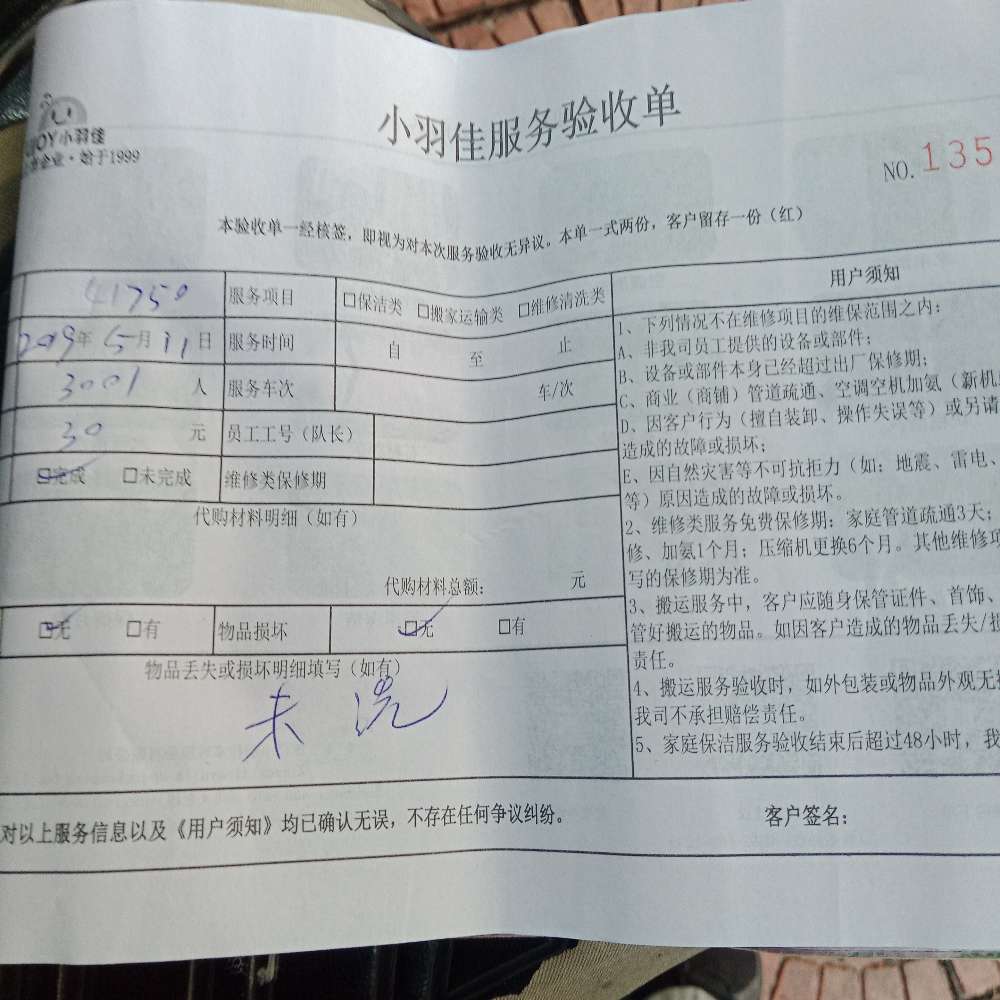 小羽佳服务验收单
JOY小羽佳
企业·始于1999
NO.135
本验收单一经核签，即视为对本次服务验收无异议。本单一式两份，客户留存一份（红）
41750 服务项目 □保洁类 □搬家运输类 □维修清洗类
2019年5月11日 服务时间 自 至 止
3001 人 服务车次 车/次
30 元 员工工号（队长）
☑完成 □未完成 维修类保修期
代购材料明细（如有）
代购材料总额： 元
☑无 □有 物品损坏 ☑无 □有
物品丢失或损坏明细填写（如有）
未 洗
用户须知
1、下列情况不在维修项目的维保范围之内：
A、非我司员工提供的设备或部件；
B、设备或部件本身已经超过出厂保修期；
C、商业（商铺）管道疏通、空调空机加氨（新机
D、因客户行为（擅自装卸、操作失误等）或另请
造成的故障或损坏；
E、因自然灾害等不可抗拒力（如：地震、雷电、
等）原因造成的故障或损坏。
2、维修类服务免费保修期：家庭管道疏通3天；
修、加氨1个月；压缩机更换6个月。其他维修项
写的保修期为准。
3、搬运服务中，客户应随身保管证件、首饰、
管好搬运的物品。如因客户造成的物品丢失/损
责任。
4、搬运服务验收时，如外包装或物品外观无损
我司不承担赔偿责任。
5、家庭保洁服务验收结束后超过48小时，我
对以上服务信息以及《用户须知》均已确认无误，不存在任何争议纠纷。
客户签名：